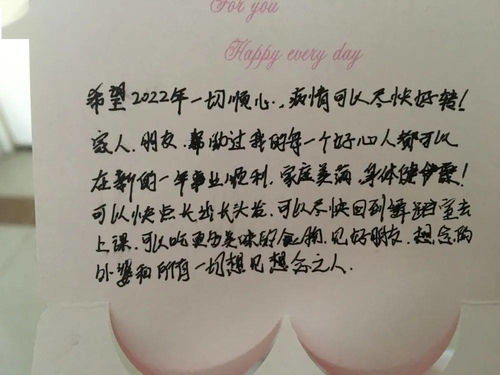 For you
Happy every day
希望2022年一切顺心,病情可以尽快好转!
家人、朋友、帮助过我的每一个好心人都可以
在新的一年事业顺利,家庭美满,身体健康!
可以快点长出长头发,可以尽快回到舞蹈室去
上课,可以吃更多美味的食物,见好朋友,想念的
外婆和所有一切想见想念之人.